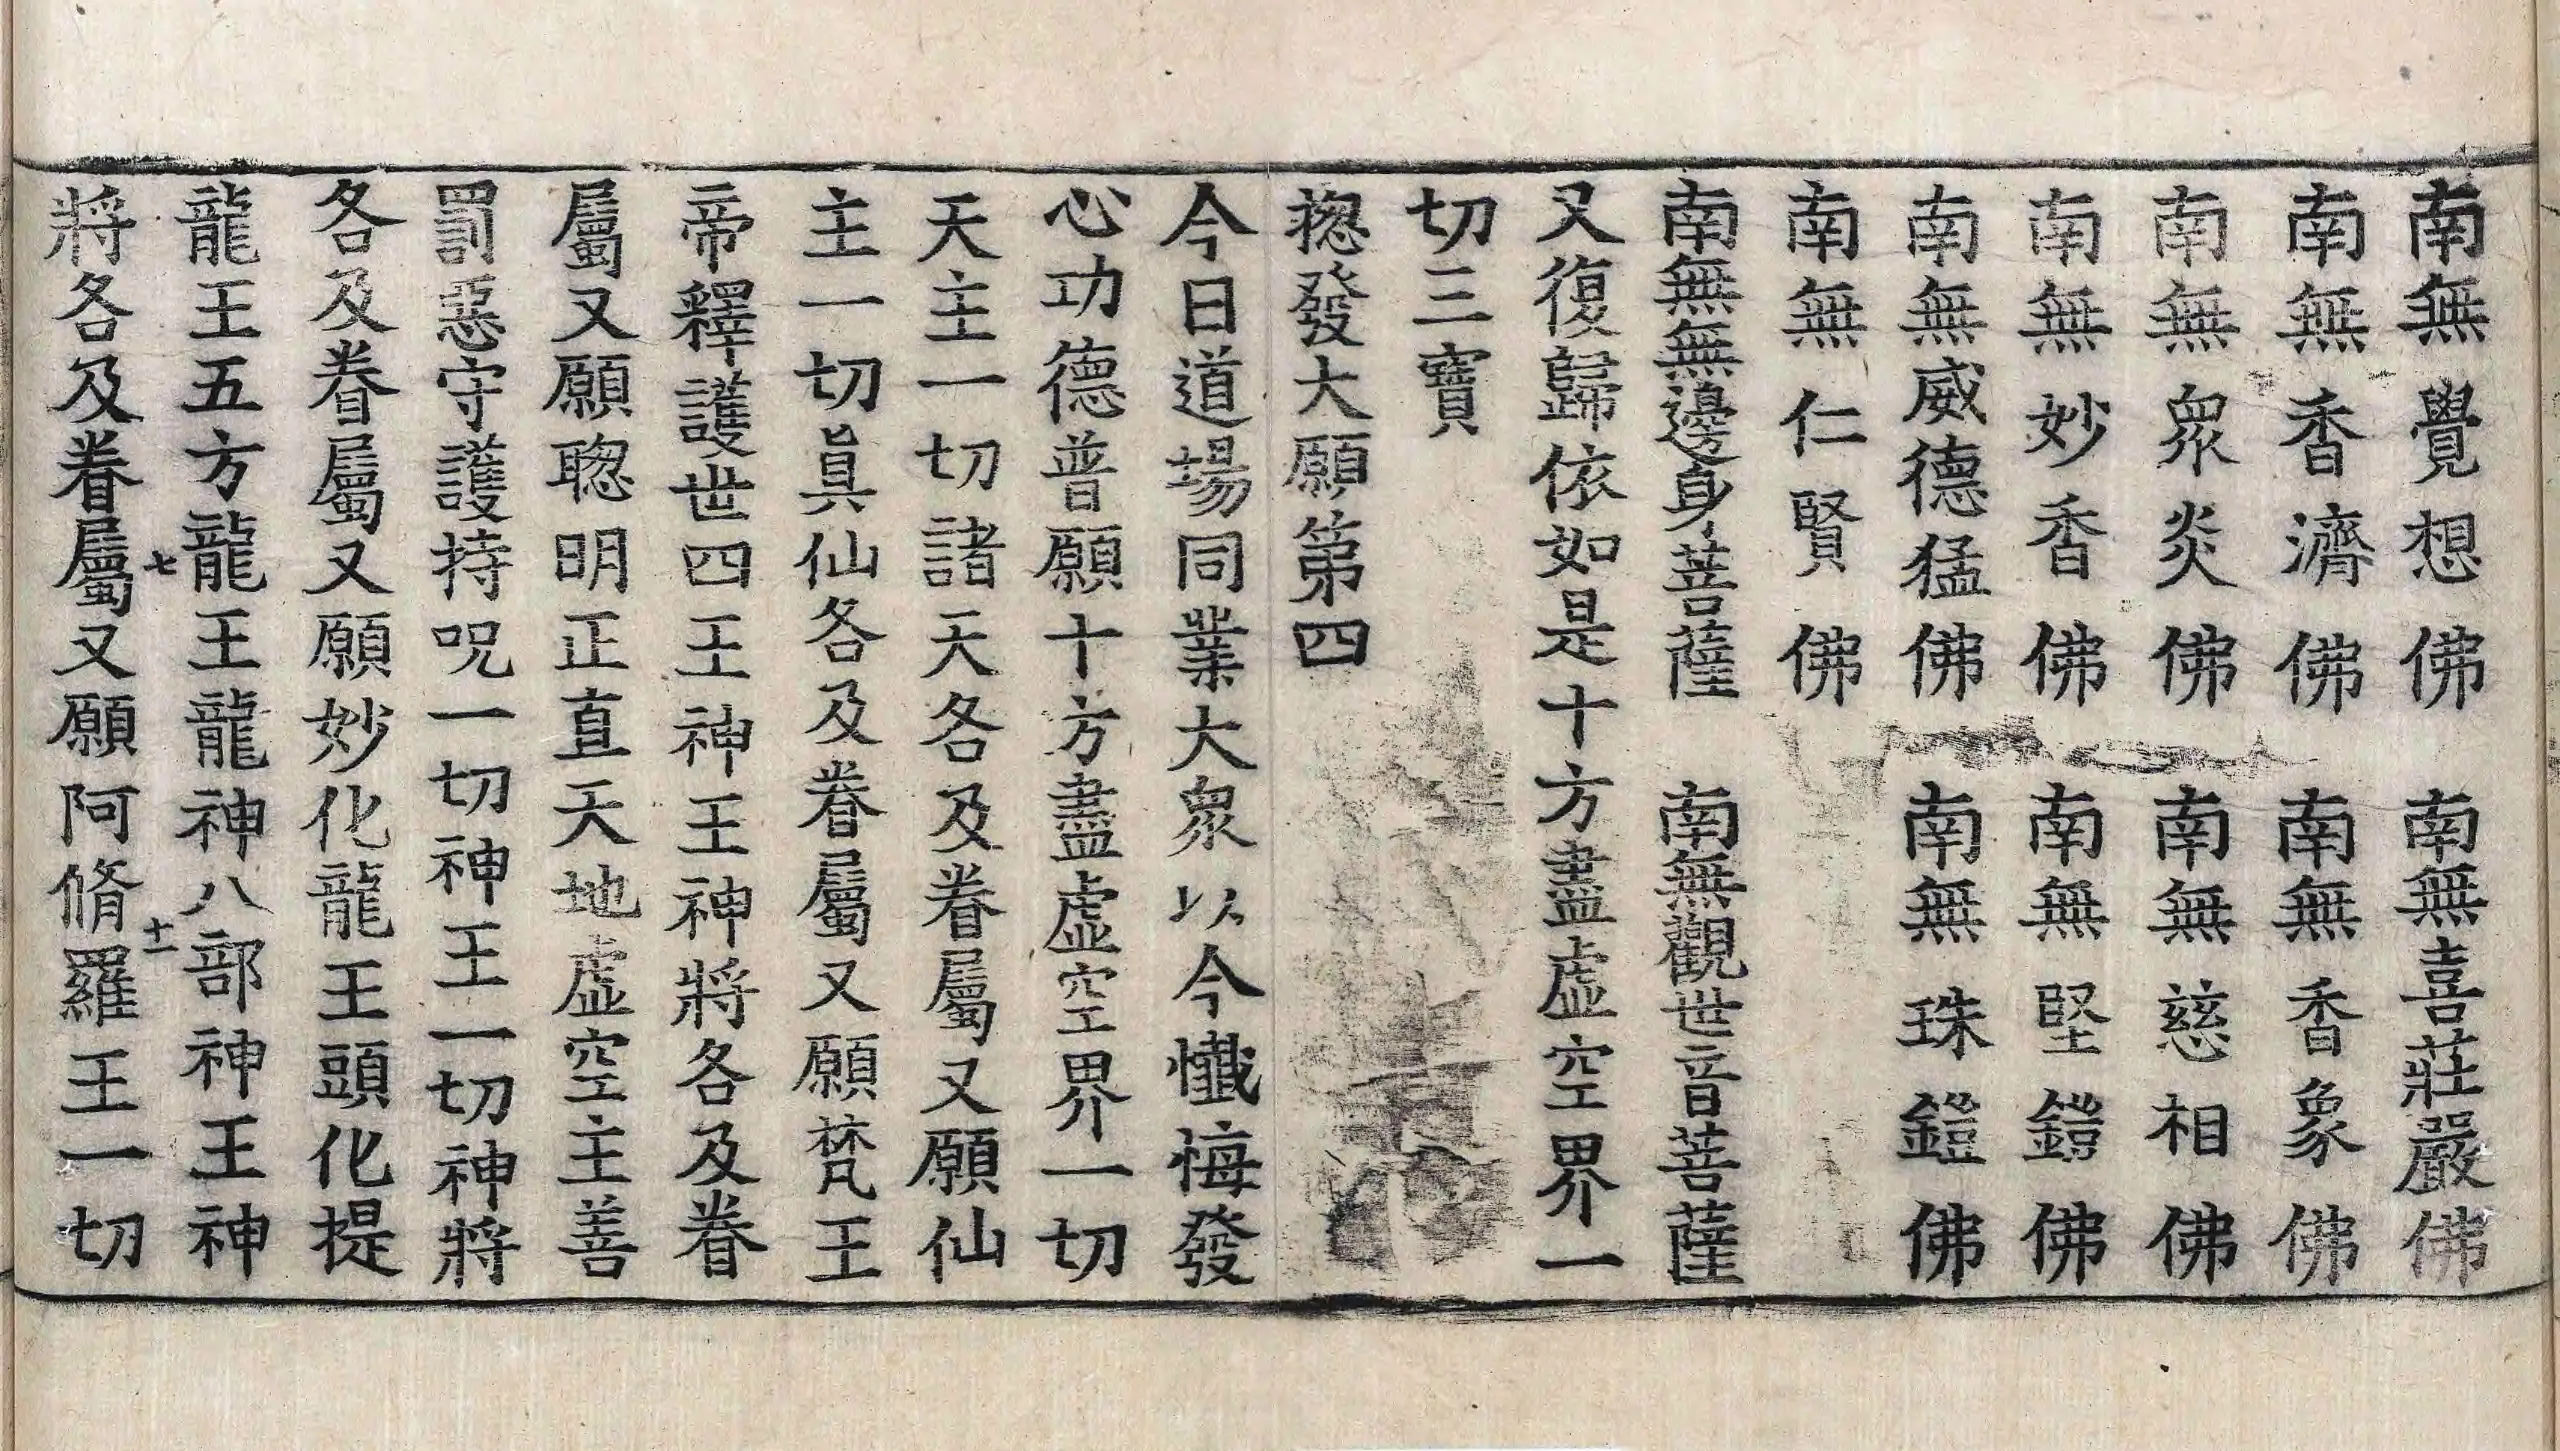 南無覺想佛　南無喜莊嚴佛
南無香濟佛　南無香象佛
南無衆炎佛　南無慈相佛
南無妙香佛　南無堅鎧佛
南無威德猛佛　南無珠鎧佛
南無仁賢佛
南無無邊身菩薩　南無觀世音菩薩
又復歸依如是十方盡虛空界一
切三寶
揔發大願第四
今日道場同業大衆以今懺悔發
心功德普願十方盡虛空界一切
天主一切諸天各及眷屬又願仙
主一切眞仙各及眷屬又願梵王
帝釋護世四王神王神將各及眷
屬又願聦明正直天地虛空主善
罰惡守護持呪一切神王一切神將
各及眷屬又願妙化龍王頭化提
龍王五方龍王龍神八部神王神
七　十一
將各及眷屬又願阿脩羅王一切